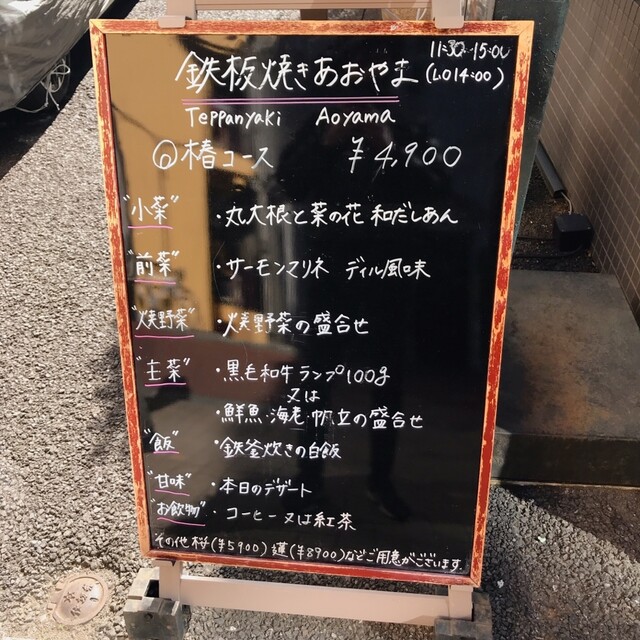 11:30-15:00
鉄板焼きあおやま (LO14:00)
Teppanyaki Aoyama
椿コース ¥4,900
"小菜" ・丸大根と菜の花 和だしあん
"前菜" ・サーモンマリネ ディル風味
"焼野菜" ・焼野菜の盛合せ
"主菜" ・黒毛和牛ランプ100g
又は
・鮮魚・海老・帆立の盛合せ
"飯" ・鉄釜炊きの白飯
"甘味" ・本日のデザート
"お飲物" ・コーヒー又は紅茶
その他 桜(¥5900) 蓮(¥8900)などご用意がございます.